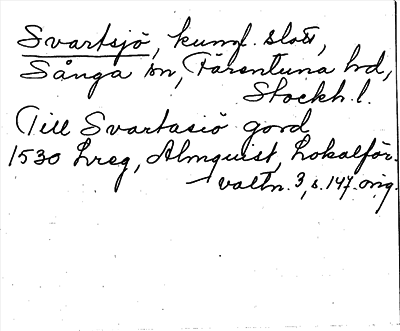 Svartsjö, kungl. slott,
Sånga sn, Färentuna hd,
Stockh. l.
Till Svartasiö gord
1530 Lreg, Almquist, Lokalför-
valtn. 3, s. 147. orig.